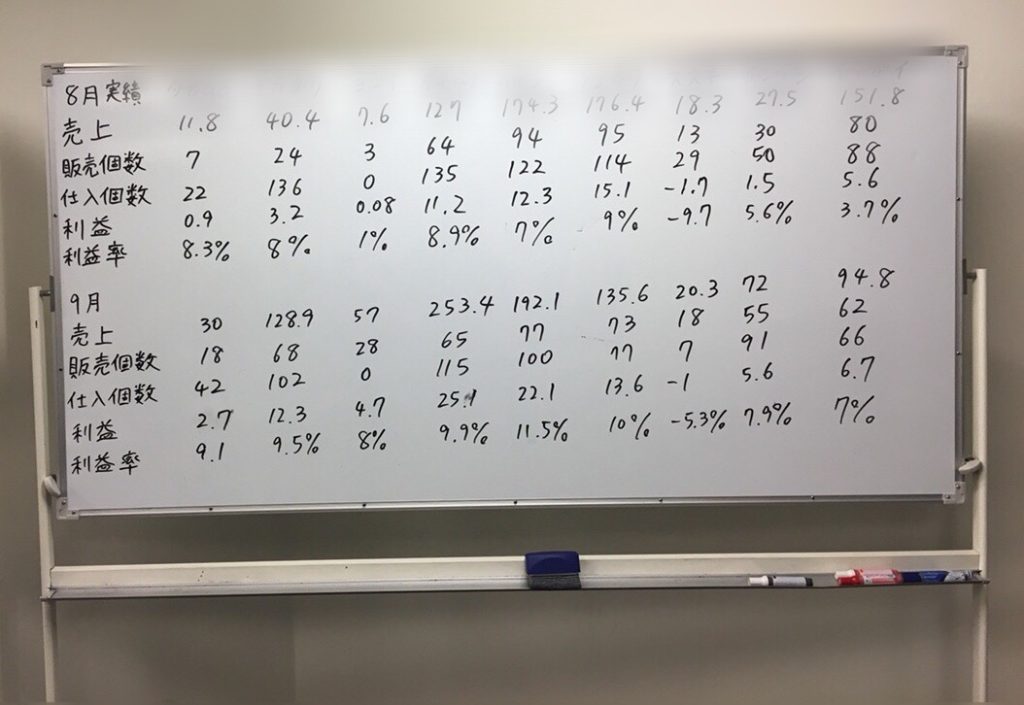 8月実績
売上 11.8 40.4 7.6 127 174.3 176.4 18.3 27.5 151.8
販売個数 7 24 3 64 94 95 13 30 80
仕入個数 22 136 0 135 122 114 29 50 88
利益 0.9 3.2 0.08 11.2 12.3 15.1 -1.7 1.5 5.6
利益率 8.3% 8% 1% 8.9% 7% 9% -9.7 5.6% 3.7%
9月
売上 30 128.9 57 253.4 192.1 135.6 20.3 72 94.8
販売個数 18 68 28 65 77 73 18 55 62
仕入個数 42 102 0 115 100 77 7 91 66
利益 2.7 12.3 4.7 25.1 22.1 13.6 -1 5.6 6.7
利益率 9.1 9.5% 8% 9.9% 11.5% 10% -5.3% 7.9% 7%